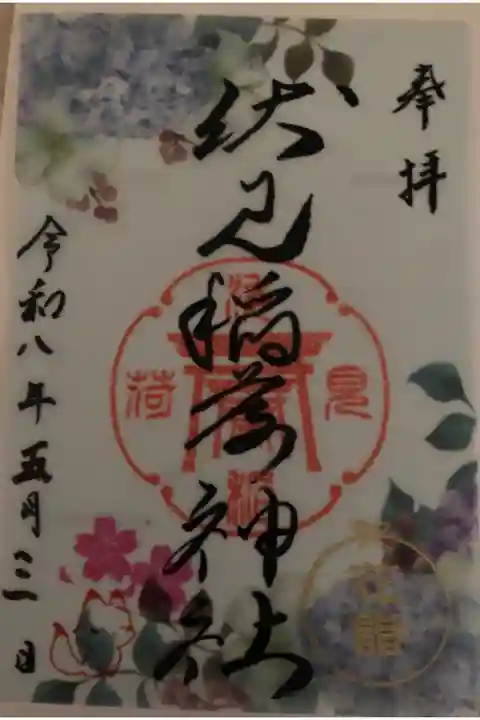 奉拝
伏見稲荷神社
令和八年五月三日
見
荷